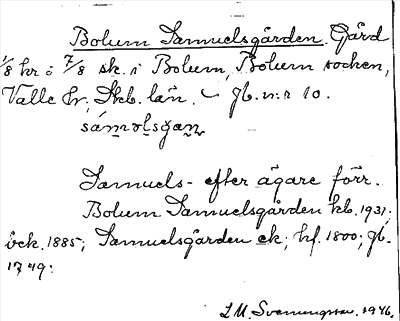 Bolum Samuelsgården. Gård
1/8 hr o 7/8 sk. i Bolum, Bolum socken,
Valle hr, Skb. län. – jb. n:r 10.
sáməlsgaṇ
Samuels- efter ägare förr.
Bolum Samuelsgården kb. 1931;
öck. 1885; Samuelsgården ek; hf. 1800; jb.
1749:
I. M. Svenungsson. 1946.